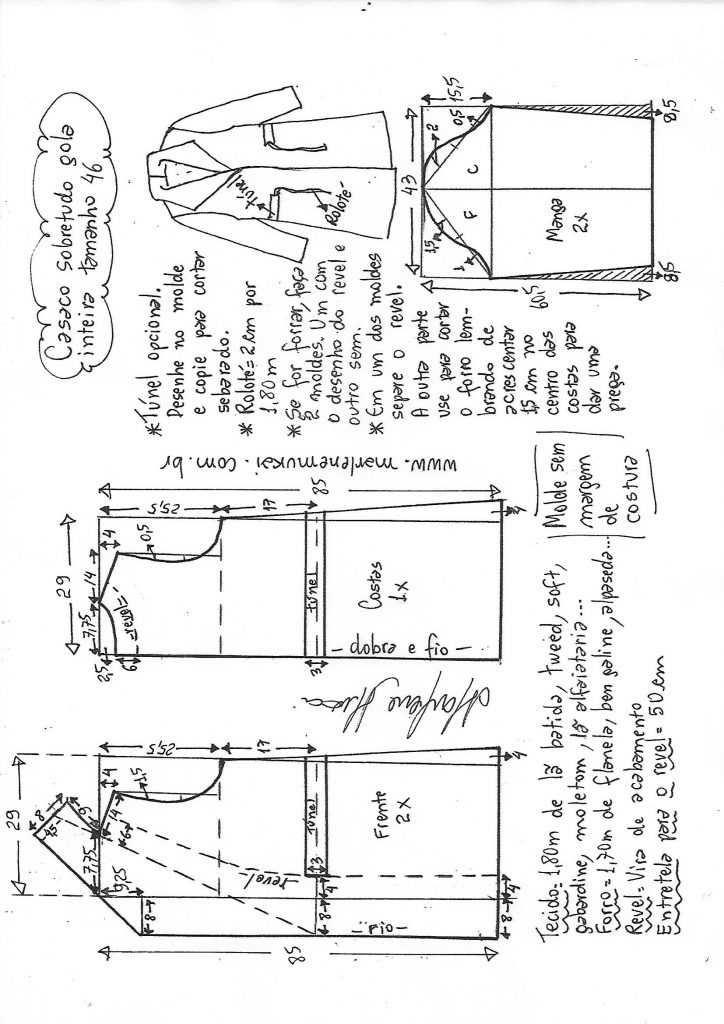 Casaco sobretudo gola
inteira tamanho 46
*Túnel opcional.
Desenhe no molde
e copie para cortar
sebarado.
*Rolotê= 2 cm por
1,80m
*Se for forrar, faça
2 moldes. Um com
o desenho do revel e
outro sem.
*Em um dos moldes
separe o revel.
A outa parte
use para cortar
o forro lem-
brando de
acrescentar
15 cm no
centro das
costas para
dar uma
prega.
túnel
Rolotê
43
15,5
0,5
2
C
F
1,5
1
Manga
2x
60,5
8,5
8,5
www.marlenemukai.com.br
Molde sem
margem
de
costura
85
25,5
17
29
4
14
0,5
7,75
revel
2,5
6
túnel
3
Costas
1x
dobra e fio
4
29
25,5
17
4
1,5
14
6
8
4,5
9
7,75
9,25
8
85
revel
túnel
3
4
8
Frente
2x
fio
4
4
8
Tecido= 1,80m de lã batida, tweed, soft,
gabardine, moletom, lã alfaiataria...
Forro= 1,70m de flanela, bengaline, alpaseda...
Revel= Vira de acabamento
Entretela para o revel= 50 cm